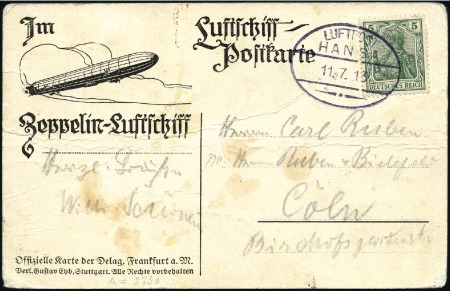 Im
Luftschiff-
Postkarte
Zeppelin-Luftschiff
LUFTPOST
HANSA
11.7.13
5
DEUTSCHES REICH
Herrn Carl Ruben
Herrn Ruben & Bielefeld
Cöln
Herzl.
Offizielle Karte der Delag, Frankfurt a. M.
Verl. Gustav Eyb, Stuttgart. Alle Rechte vorbehalten